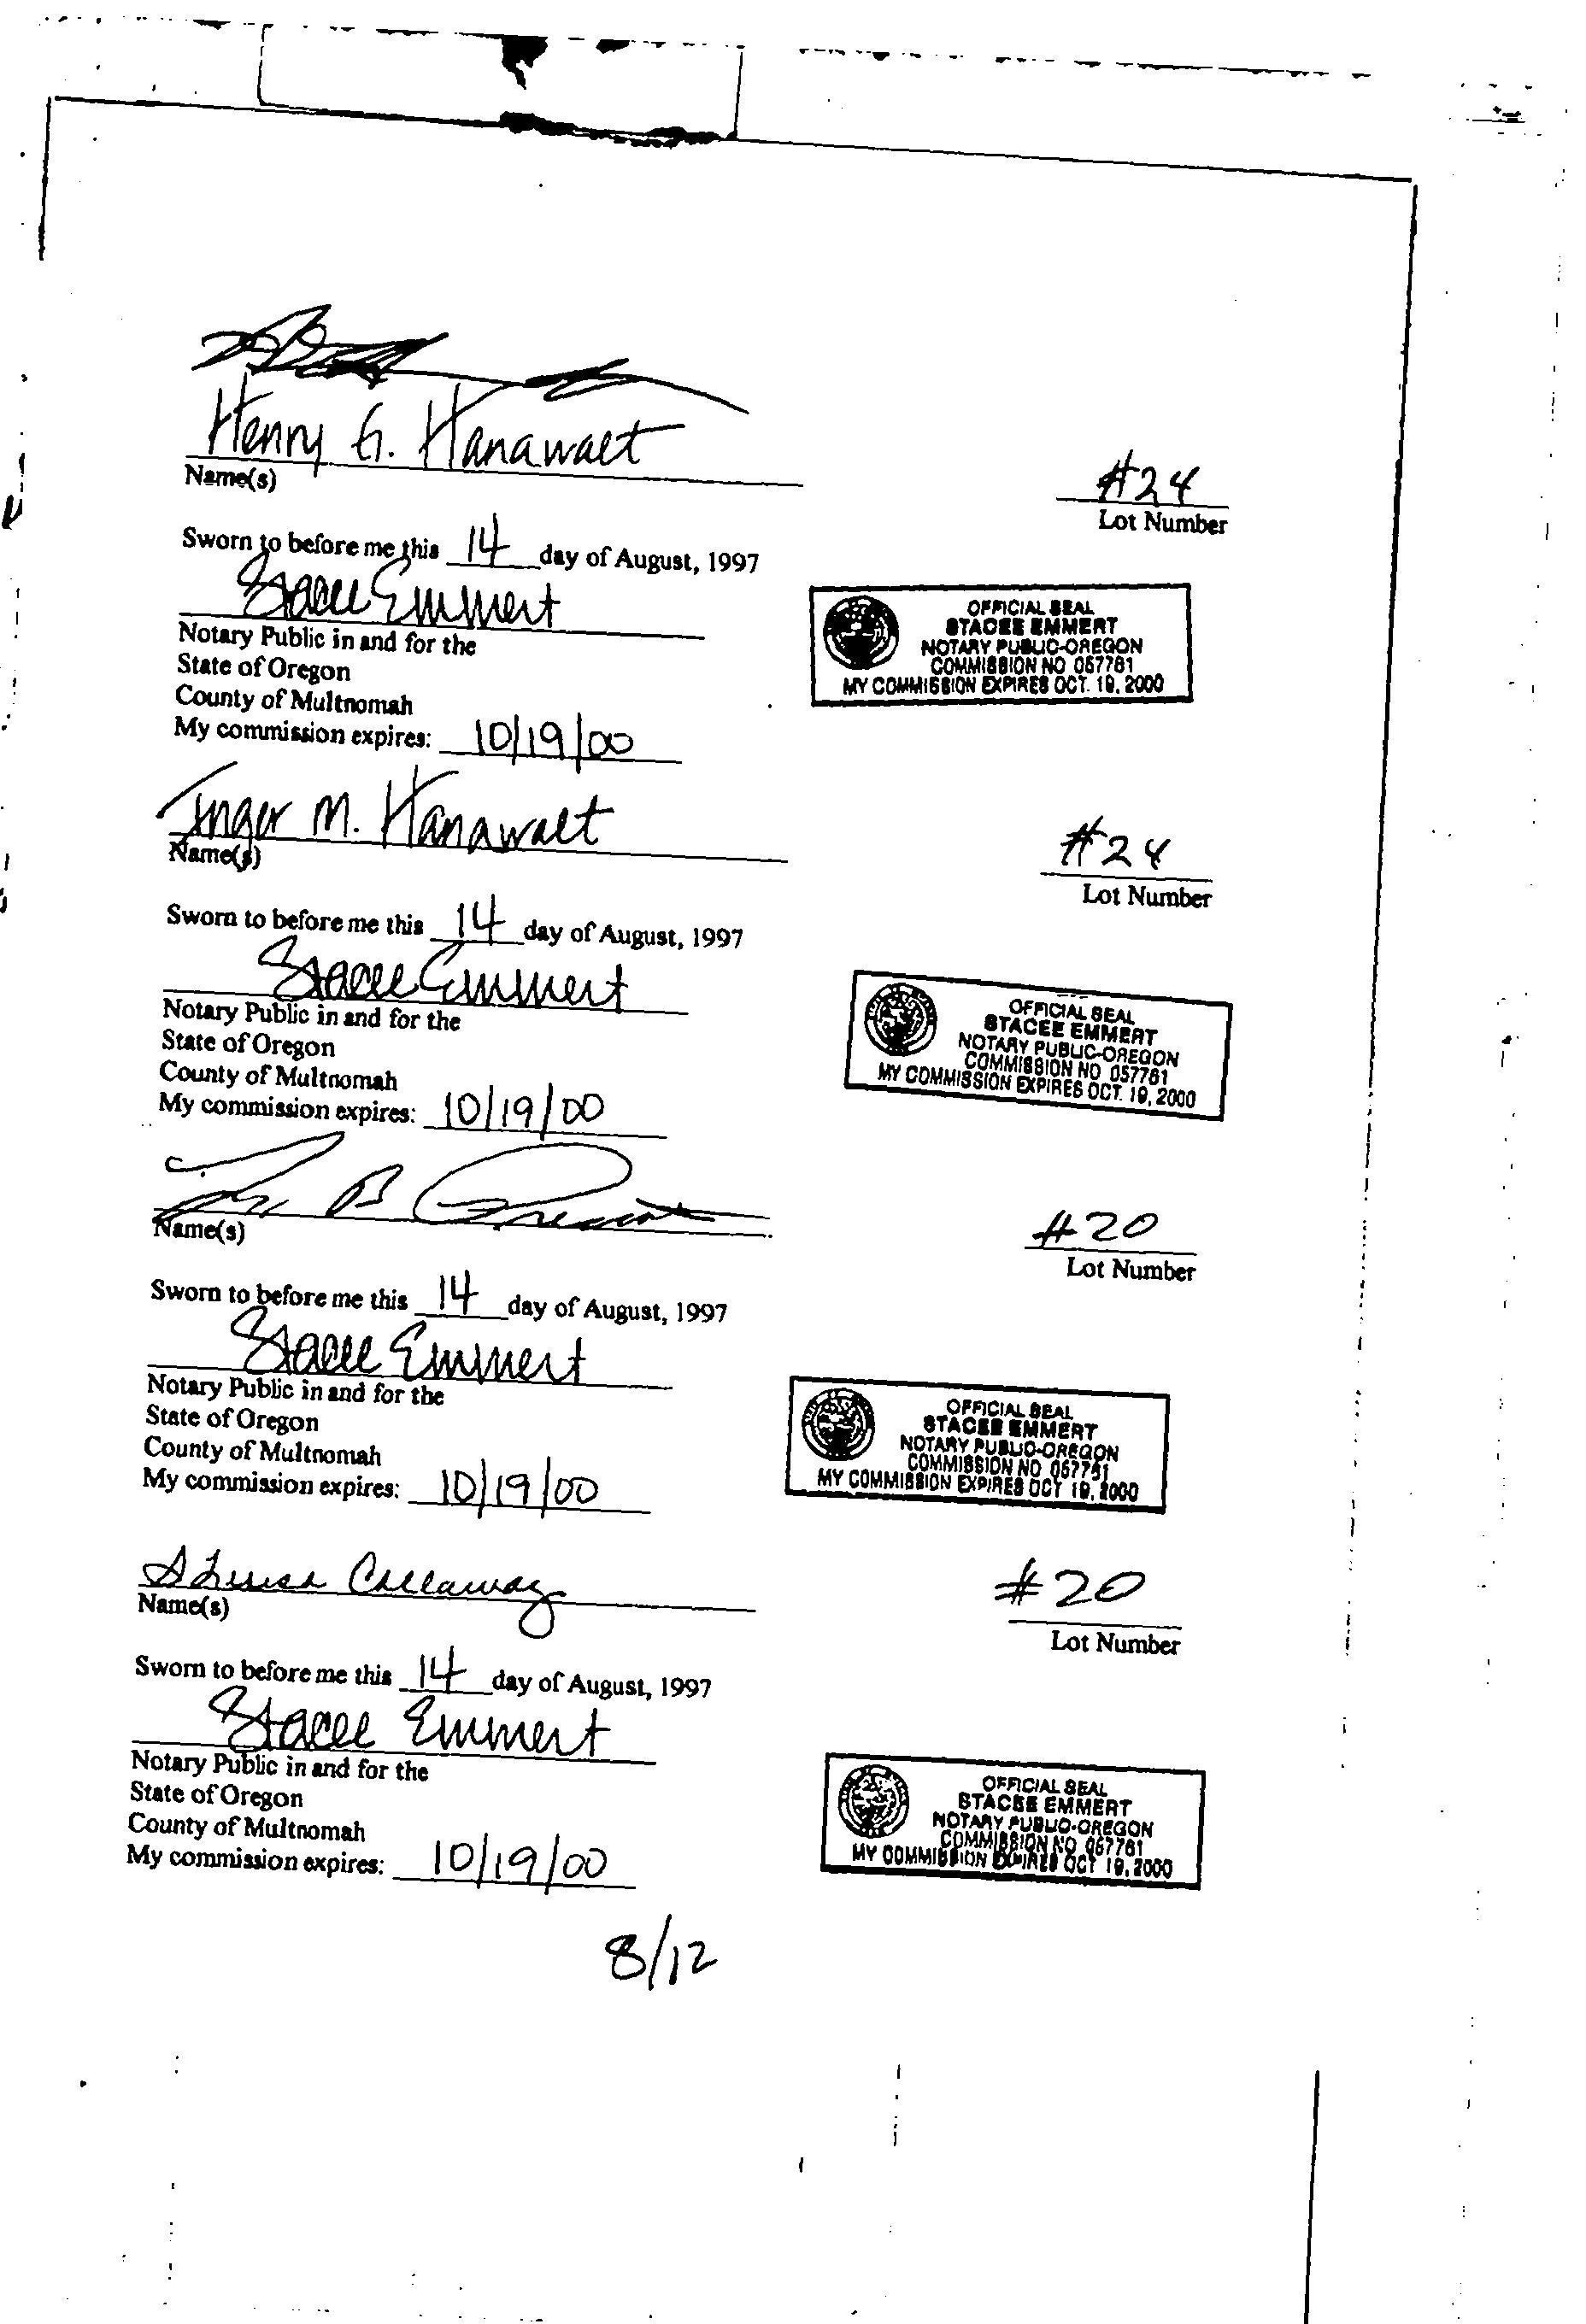 Henry G. Hanawalt
Name(s)
#24
Lot Number
Sworn to before me this 14 day of August, 1997
Stacee Emmert
Notary Public in and for the
State of Oregon
County of Multnomah
My commission expires: 10/19/00
OFFICIAL SEAL
STACEE EMMERT
NOTARY PUBLIC-OREGON
COMMISSION NO 057761
MY COMMISSION EXPIRES OCT. 19, 2000
Inger M. Hanawalt
Name(s)
#24
Lot Number
Sworn to before me this 14 day of August, 1997
Stacee Emmert
Notary Public in and for the
State of Oregon
County of Multnomah
My commission expires: 10/19/00
OFFICIAL SEAL
STACEE EMMERT
NOTARY PUBLIC-OREGON
COMMISSION NO 057761
MY COMMISSION EXPIRES OCT. 19, 2000
B
Name(s)
#20
Lot Number
Sworn to before me this 14 day of August, 1997
Stacee Emmert
Notary Public in and for the
State of Oregon
County of Multnomah
My commission expires: 10/19/00
OFFICIAL SEAL
STACEE EMMERT
NOTARY PUBLIC-OREGON
COMMISSION NO 057761
MY COMMISSION EXPIRES OCT 19, 2000
Callaway
Name(s)
#20
Lot Number
Sworn to before me this 14 day of August, 1997
Stacee Emmert
Notary Public in and for the
State of Oregon
County of Multnomah
My commission expires: 10/19/00
OFFICIAL SEAL
STACEE EMMERT
NOTARY PUBLIC-OREGON
COMMISSION NO 057761
MY COMMISSION EXPIRES OCT 19, 2000
8/12